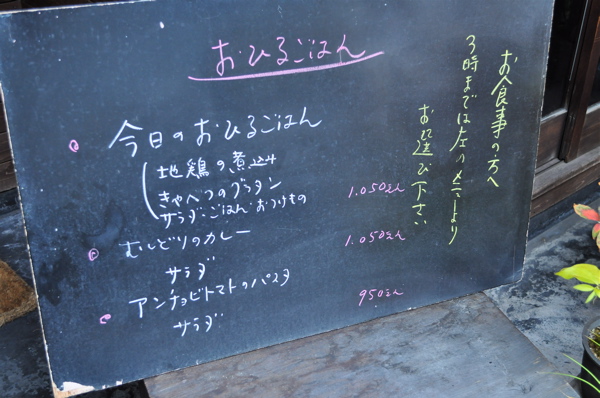 おひるごはん
今日のおひるごはん
地鶏の煮込み
きゃべつのグラタン
サラダ・ごはん・おつけもの
1.050えん
むしどりのカレー
サラダ
1.050えん
アンチョビトマトのパスタ
サラダ
950えん
お食事の方へ
3時までは左のメニューより
お選び下さい